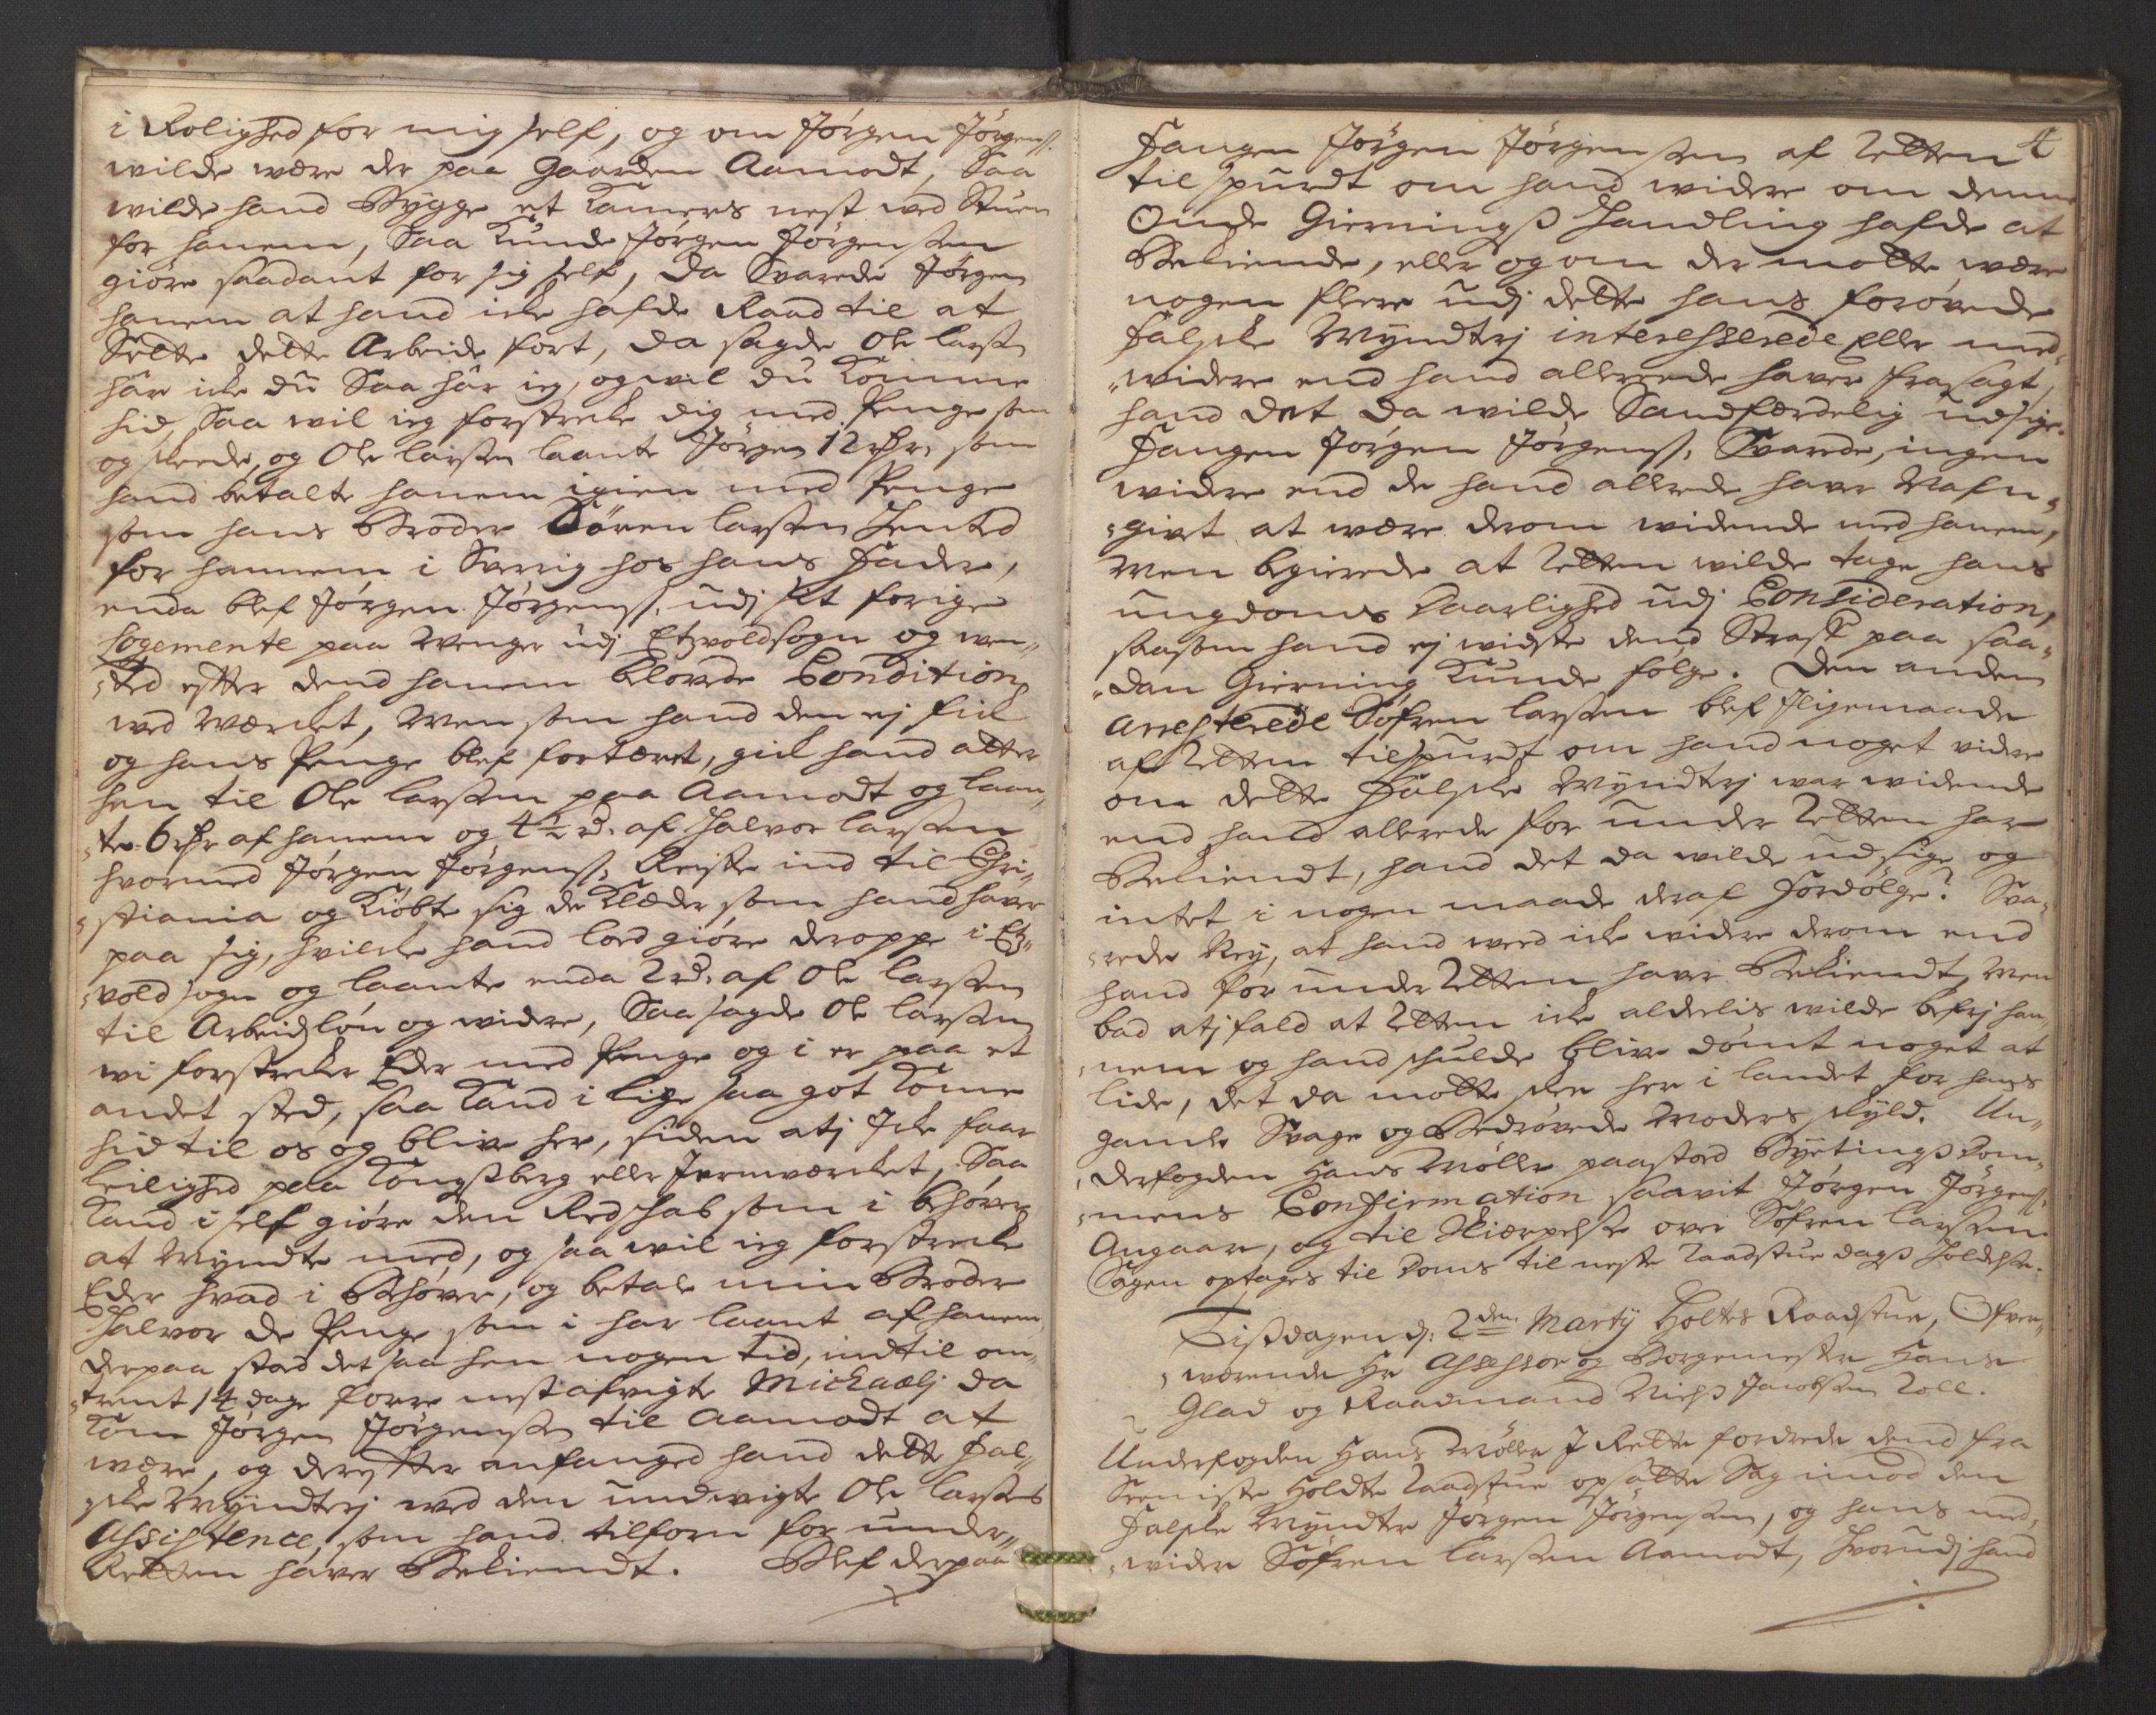 i Rolighed for mig self, og om Jörgen Jörgenss:
wilde være der paa gaarden Aamodt, Saa
wilde hand Bÿgge et Kamers nest ved Stuen
for hanem, Saa kunde Jörgen Jörgensen
giøre saadant for sig self, da Svarede Jörgen
hanem at hand icke hafde Raad til at
Sette dette Arbeide fort, da sagde Ole larsen
här icke du Saa här ieg, og wil du komme
hid, Saa wil ieg forstrecke dig med Penge som
og skeede, og Ole larsen laante Jörgen 12 rdr, som
hand betalte hanem igien med Penge
som hans Broder Sören larsen hented
for hannem i Sverrig hos hans Fader,
enda blef Jörgen Jörgenss: udj sit forige
logemente paa Wenger udj Eÿdvoldsogn og wen-
-ted efter dend hanem belovede Condition
ved Wærcket, Men som hand den ej fick
og hans Penge blef fortæret, gick hand atter
hen til Ole larsen paa Aamodt og laan-
-te 6 rdr af hanem og 4½ rd. af Halvor larsen
hvormed Jörgen Jörgenss: Reiste ind til Chri-
-stiania og Kiöbte sig de Klæder som hand haver
paa sig, hvilcke hand loed giøre deroppe i Eÿd-
-vold sogn og laante enda 2 rd. af Ole larsen
til Arbeidslön og widere, Saa sagde Ole larsen
wi forstrecker Eder med Penge og i er paa et
andet sted, saa kand i lige saa got komme
hid til os og blive her, siden atj Icke faar
leilighed paa Kongsberg eller Jernwærcket, Saa
kand i self giøre den Redskab som i behøver
at Myndte med, og saa wil ieg forstrecke
Eder hvad i Behøver, og betale min Broder
Halvor de Penge som i har laant af hanem
derpaa stod det saa hen nogen tid, indtil om-
-trent 14 dage forre nest afvigte Michaelj da
kom Jörgen Jörgensen til Aamodt at
være, og derefter anfanged hand dette Fal-
-ske Myndterj med den undvigte Ole larsens
Assistence, som hand tilforn for under-
Retten haver Bekiendt. Blef derpaa
4
Fangen Jörgen Jörgensen af Retten
tilspurdt om hand widere om denne
Onde Giernings Handling hafde at
Bekiende, eller og om der motte være
nogen flere udj dette hans forøvede
Falske Myndterj interesserede Eller med-
-widere end hand allereede haver frasagt,
hand det da wilde Sandfærdelig udsige.
Fangen Jörgen Jörgenss: Svarede, ingen
widere end de hand allerede haver Nafn-
-givet at være derom widende med hanem,
Men begierede at Retten wilde tage hans
ungdoms Daarlighed udj Consideration,
saasom hand ej widste dend Straf paa saa-
-dan Gierning kunde følge. Den anden
arresterede Søfren larsen blef iligemaade
af Retten tilspurdt om hand noget videre
om dette Falske Myndterj war widende
end hand allerede for under Retten har
Bekiendt, hand det da wilde udsige og
intet i nogen maade deraf Fordölge? Sva-
-rede Neÿ, at hand weed icke widere derom end
hand for under Retten haver Bekiendt, Men
bad atj fald at Retten icke alderlis wilde befrj han-
-nem og hand skulde blive dømt noget at
lide, det da motte skee her i landet for hans
gamle Svage og Bedrøvede Moders skyld. Un-
-derfogden Hans Møller paastod Byetings dom-
-mens Confirmation saavit Jörgen Jörgenss:
Angaar, og til Skiærpelse over Søfren larsen
Sagen optages til doms til neste Raadstue dags holdelse.
Tisdagen d: 2den Martÿ Holtes Raadstue, Ofver-
-værende Hr Assessor og Borgemester Hans
Glad og Raadmand Niels Jacobsen Coll.
Underfogden Hans Møller J Rette fordrede dend fra
Seeniste holdte Raadstue opsatte Sag imod den
Falske Myndter Jörgen Jörgensen, og hans med-
-vider Søfren larsen Aamodt, hvorudj hand